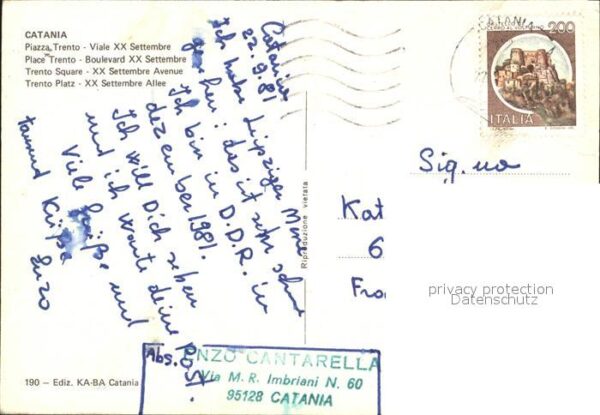 CATANIA
Piazza Trento - Viale XX Settembre
Place Trento - Boulevard XX Settembre
Trento Square - XX Settembre Avenue
Trento Platz - XX Settembre Allee
Catania
22.9.81
Ich habe Leipziger Messe
gesehen: das ist sehr schön
Ich bin in D.D.R. in
dezember 1981.
Ich will Dich sehen
und ich warte deine Post.
Viele Grüße und
tausend Küße
Enzo
Abs.
ENZO CANTARELLA
Via M. R. Imbriani N. 60
95128 CATANIA
190 - Ediz. KA-BA Catania
Riproduzione vietata
200
ITALIA
Sig.na
Kat
6
Fra
privacy protection
Datenschutz